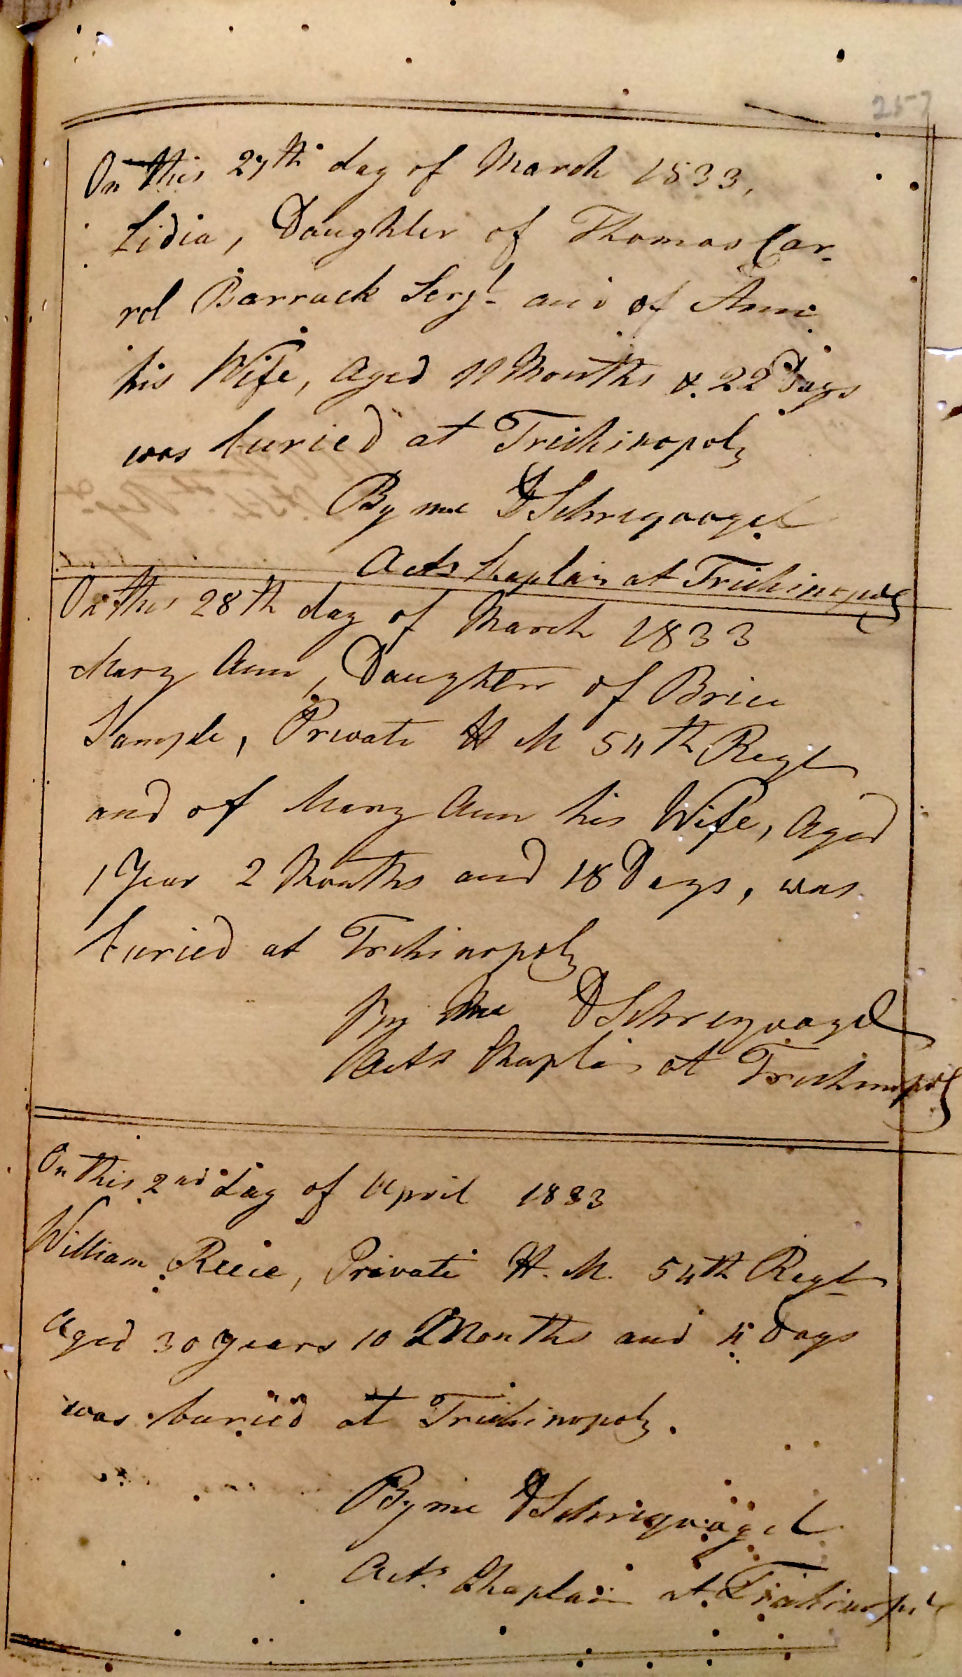 257
On this 27th day of March 1833,
Lidia, Daughter of Thomas Car-
rol Barrack Sergt and of Ann
his Wife, Aged 11 Months & 22 Days
was buried at Trichinopoly
By me D Schreyvogel
Actg Chaplain at Trichinopoly
On this 28th day of March 1833
Mary Ann, Daughter of Brice
Sample, Private H M 54th Regt
and of Mary Ann his Wife, Aged
1 Year 2 Months and 18 Days, was
buried at Trchinopoly
By Me D Schreyvogel
Actg Chaplin at Trichinopoly
On this 2nd day of April 1833
William Reeie, Private H. M. 54th Regt
Aged 30 years 10 Months and 4 Days
was buried at Trichinopoly.
By me D Schreyvogel
Actg Chaplain at Trichinopoly